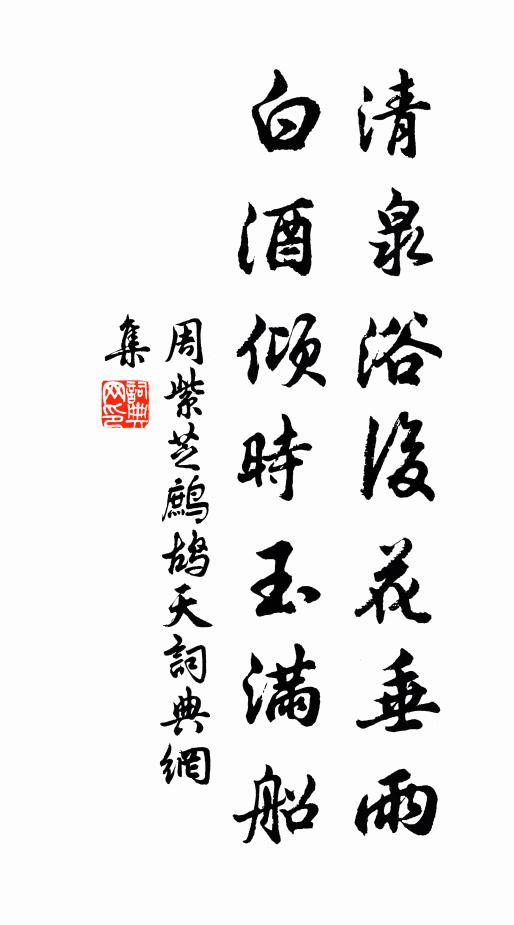 清泉浴後花垂雨
白酒傾時玉滿船
周紫芝鷓鴣天詞典網
集
詞典網印